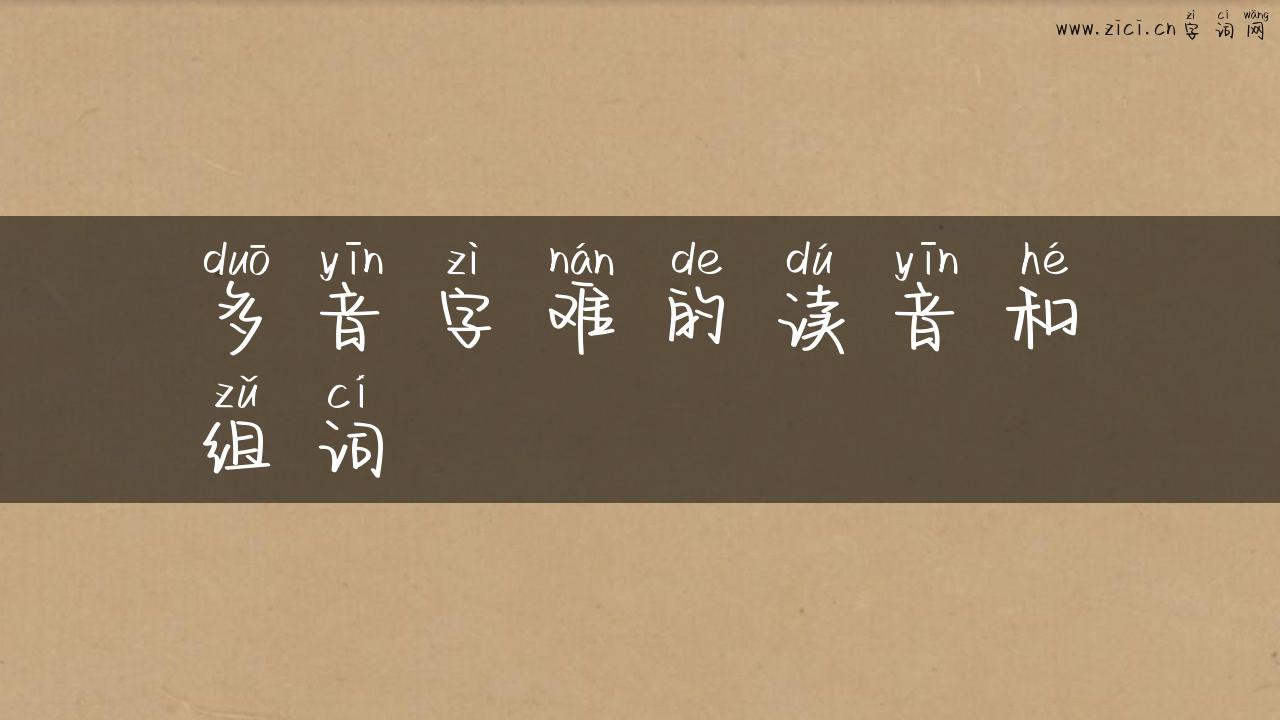 zì cí wǎng
www.zici.cn 字 词 网
duō yīn zì nán de dú yīn hé
多 音 字 难 的 读 音 和
zǔ cí
组 词